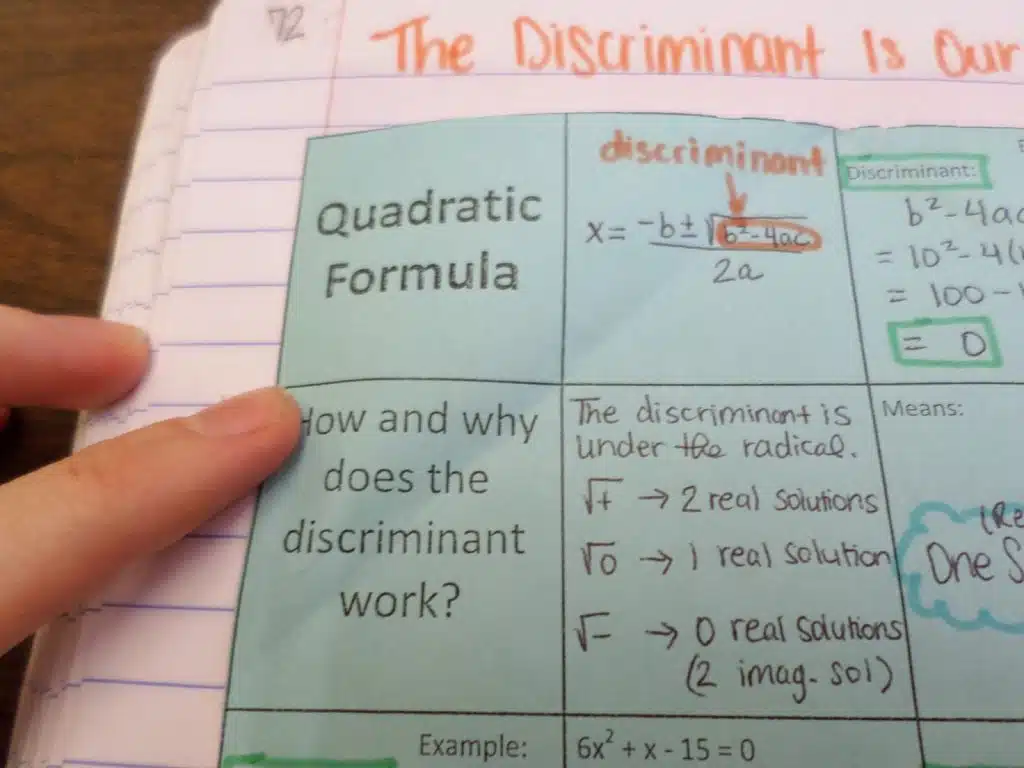 72
The Discriminant Is Our
Quadratic
Formula
discriminant
x= -b ± √b²-4ac
2a
Discriminant:
b²-4ac
= 10²-4(
= 100 -
= 0
How and why
does the
discriminant
work?
The discriminant is
under the radical.
√+ → 2 real solutions
√0 → 1 real solution
√- → 0 real solutions
(2 imag. sol)
Means:
(Re
One S
Example:
6x² + x - 15 = 0